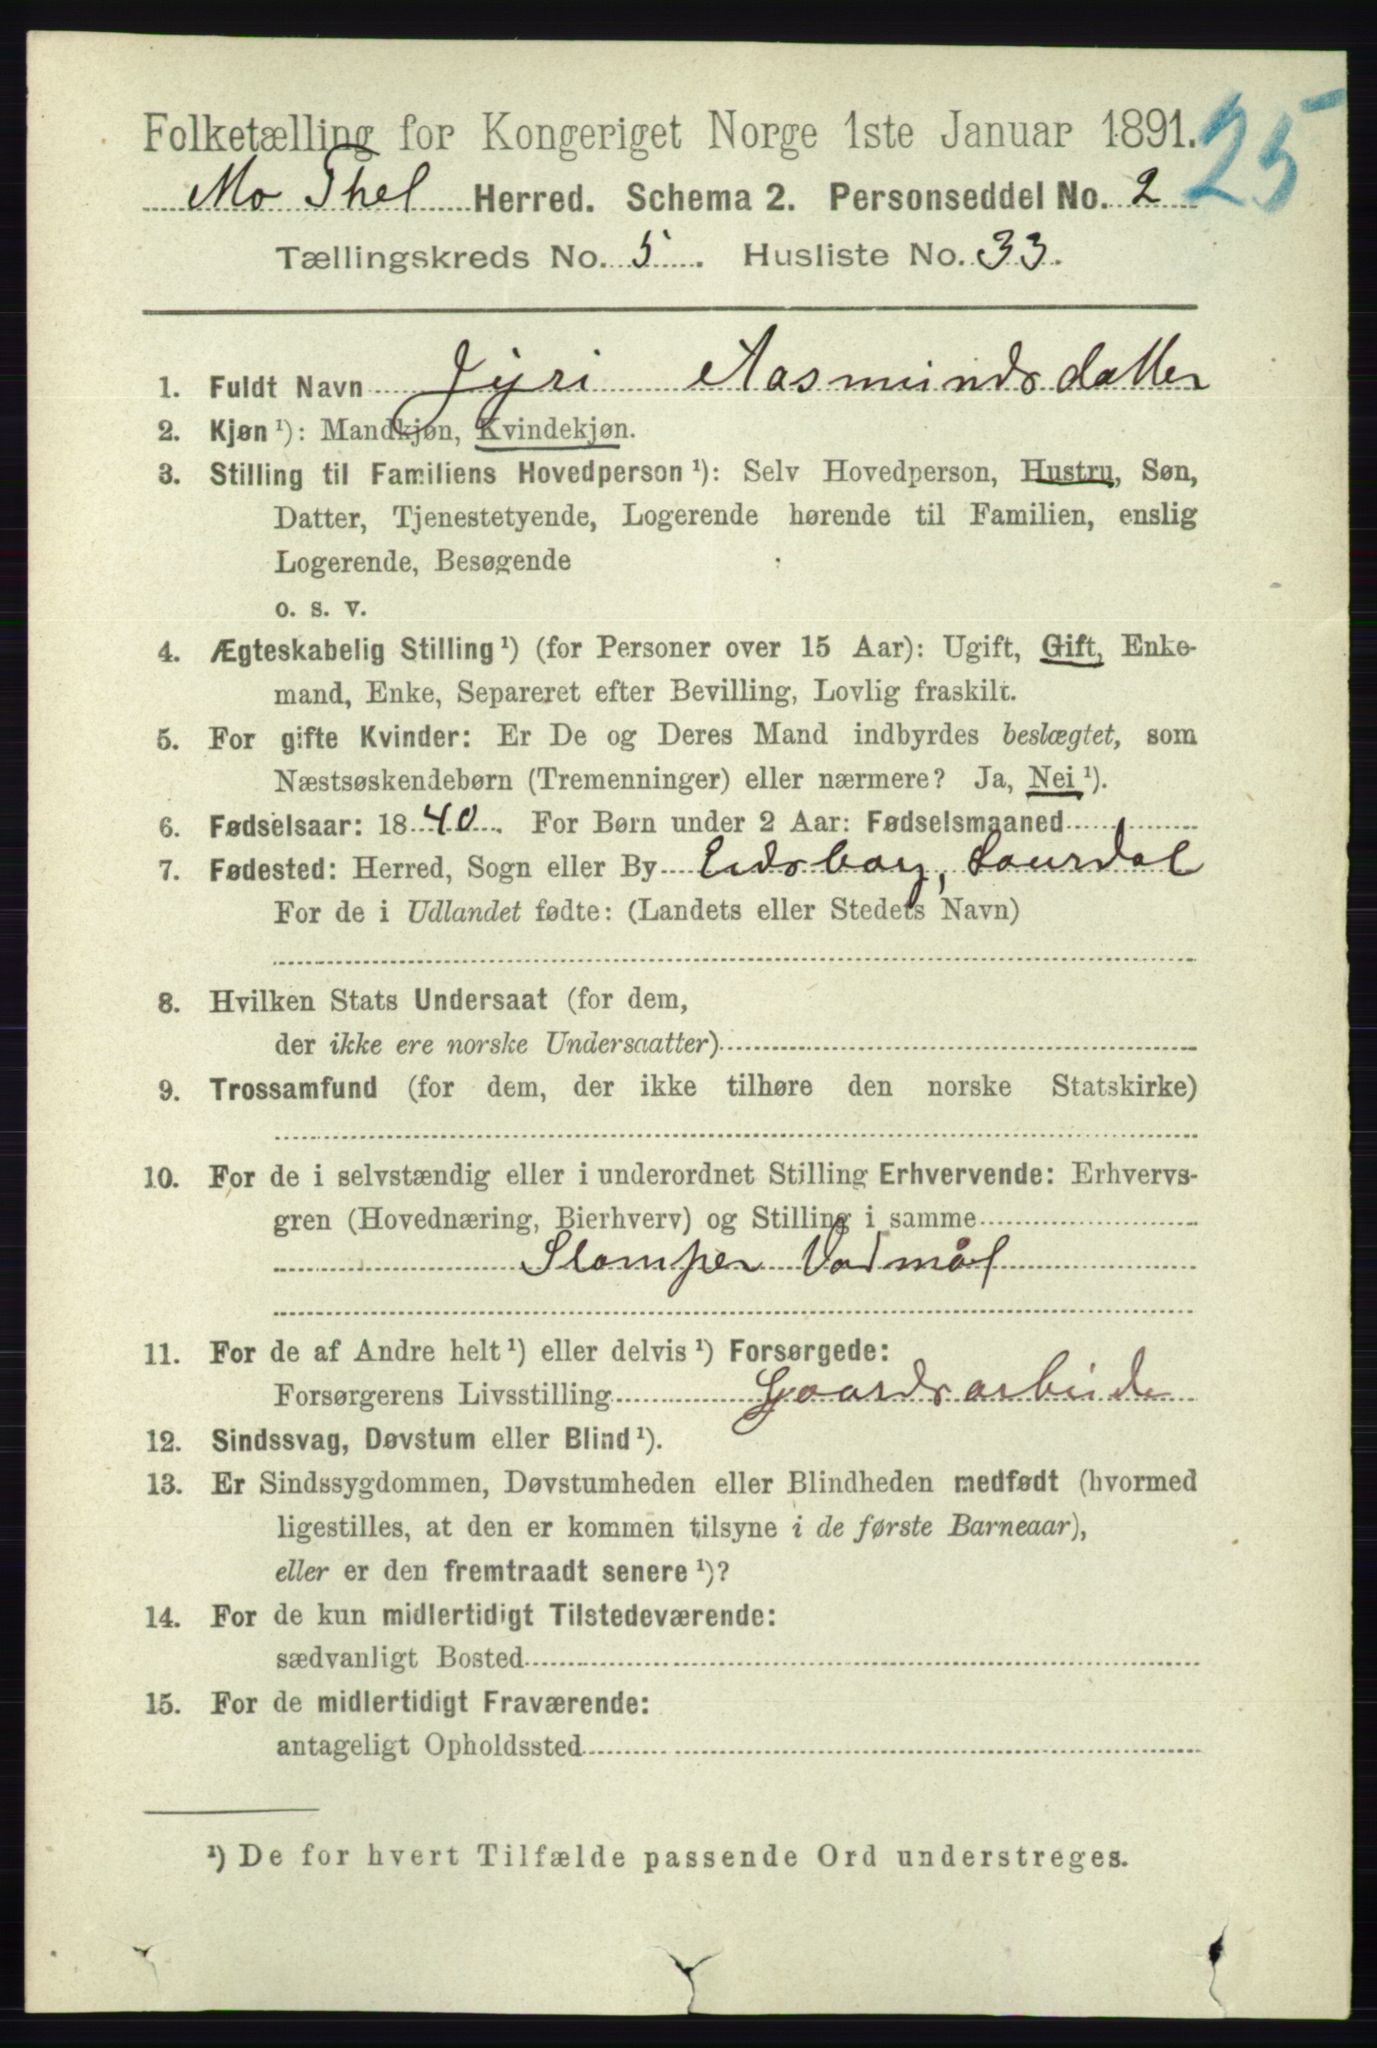 Folketælling for Kongeriget Norge 1ste Januar 1891. 25
Mo Thel Herred. Schema 2. Personseddel No. 2
Tællingskreds No. 5. Husliste No. 33.
1. Fuldt Navn Jyri Aasmundsdatter
2. Kjøn ¹): Mandkjøn, Kvindekjøn.
3. Stilling til Familiens Hovedperson ¹): Selv Hovedperson, Hustru, Søn,
Datter, Tjenestetyende, Logerende hørende til Familien, enslig
Logerende, Besøgende
o. s. v.
4. Ægteskabelig Stilling ¹) (for Personer over 15 Aar): Ugift, Gift, Enke-
mand, Enke, Separeret efter Bevilling, Lovlig fraskilt.
5. For gifte Kvinder: Er De og Deres Mand indbyrdes beslægtet, som
Næstsøskendebørn (Tremenninger) eller nærmere? Ja, Nei ¹).
6. Fødselsaar: 1840. For Børn under 2 Aar: Fødselsmaaned
7. Fødested: Herred, Sogn eller By Eidsborg, Laurdal
For de i Udlandet fødte: (Landets eller Stedets Navn)
8. Hvilken Stats Undersaat (for dem,
der ikke ere norske Undersaatter)
9. Trossamfund (for dem, der ikke tilhøre den norske Statskirke)
10. For de i selvstændig eller i underordnet Stilling Erhvervende: Erhvervs-
gren (Hovednæring, Bierhverv) og Stilling i samme
Stamper Vadmål
11. For de af Andre helt ¹) eller delvis ¹) Forsørgede:
Forsørgerens Livsstilling Gaardsarbeide
12. Sindssvag, Døvstum eller Blind ¹).
13. Er Sindssygdommen, Døvstumheden eller Blindheden medfødt (hvormed
ligestilles, at den er kommen tilsyne i de første Barneaar),
eller er den fremtraadt senere ¹)?
14. For de kun midlertidigt Tilstedeværende:
sædvanligt Bosted
15. For de midlertidigt Fraværende:
antageligt Opholdssted
¹) De for hvert Tilfælde passende Ord understreges.